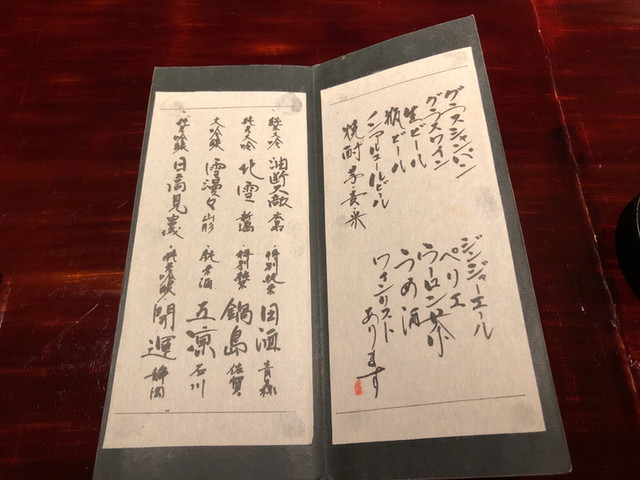 グラスシャンパン
グラスワイン
生ビール
瓶ビール
ノンアルコールビール
焼酎 芋・麦・米
ジンジャーエール
ペリエ
ウーロン茶
うめ酒
ワインリスト
あります
純米大吟 油断大敵
純米大吟 北雪 新潟
大吟醸 雪漫々 山形
純米吟醸 日高見 宮城
特別純米 田酒 青森
特別純米 鍋島 佐賀
純米酒 五凛 石川
純米吟醸 開運 静岡